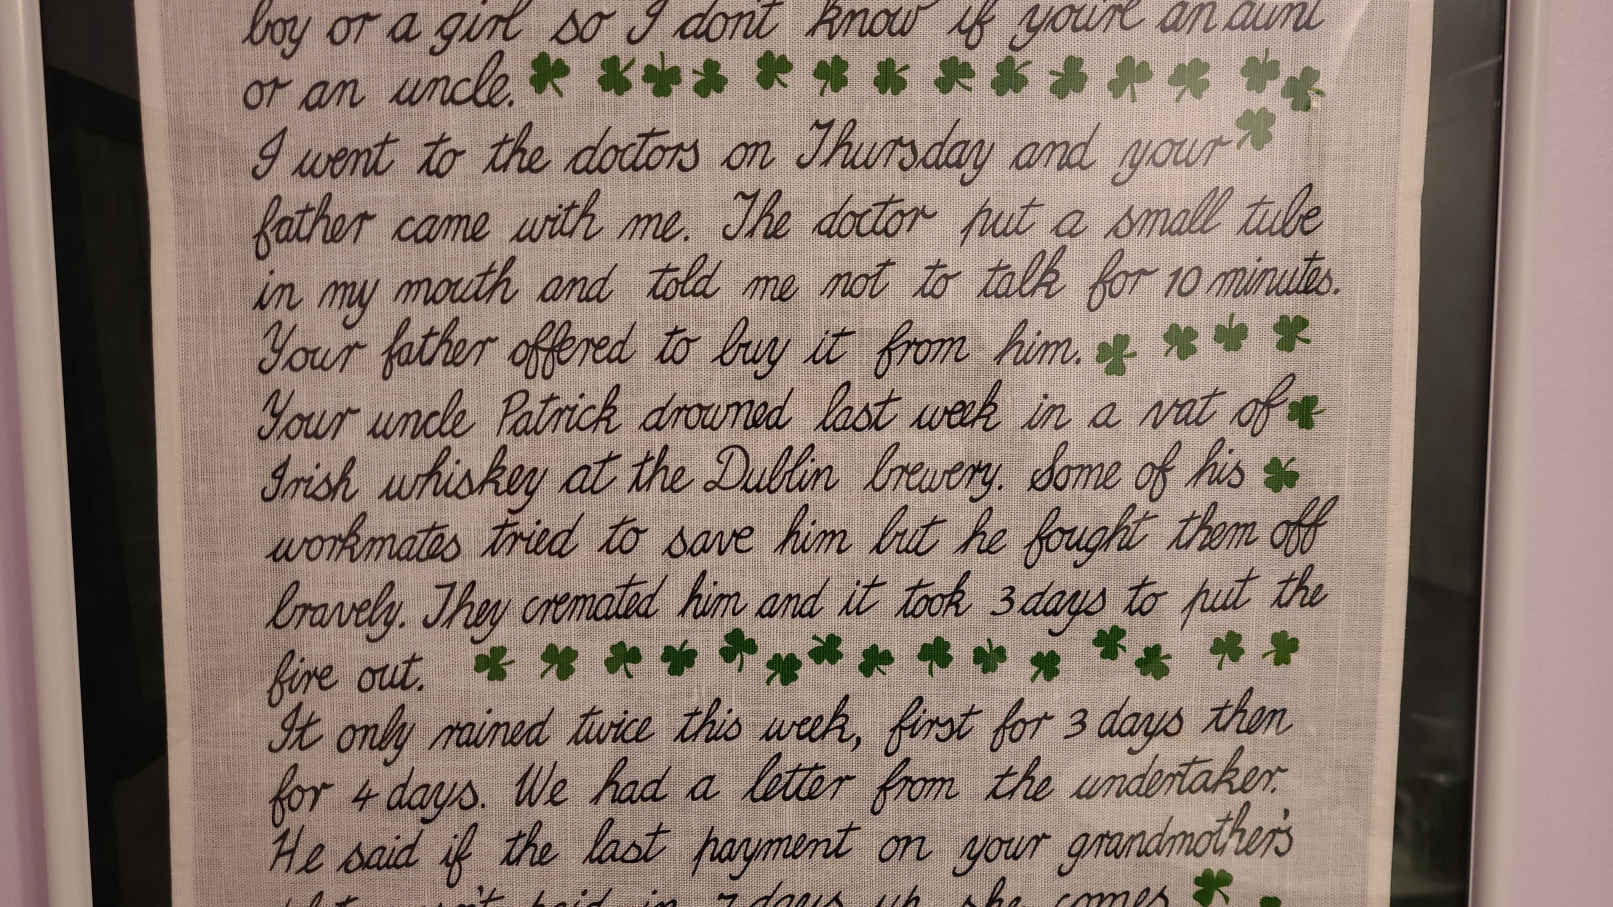 boy or a girl so I don't know if you're an aunt
or an uncle.
I went to the doctors on Thursday and your
father came with me. The doctor put a small tube
in my mouth and told me not to talk for 10 minutes.
Your father offered to buy it from him.
Your uncle Patrick drowned last week in a vat of
Irish whiskey at the Dublin brewery. Some of his
workmates tried to save him but he fought them off
bravely. They cremated him and it took 3 days to put the
fire out.
It only rained twice this week, first for 3 days then
for 4 days. We had a letter from the undertaker.
He said if the last payment on your grandmother's
paid in 7 days up she comes